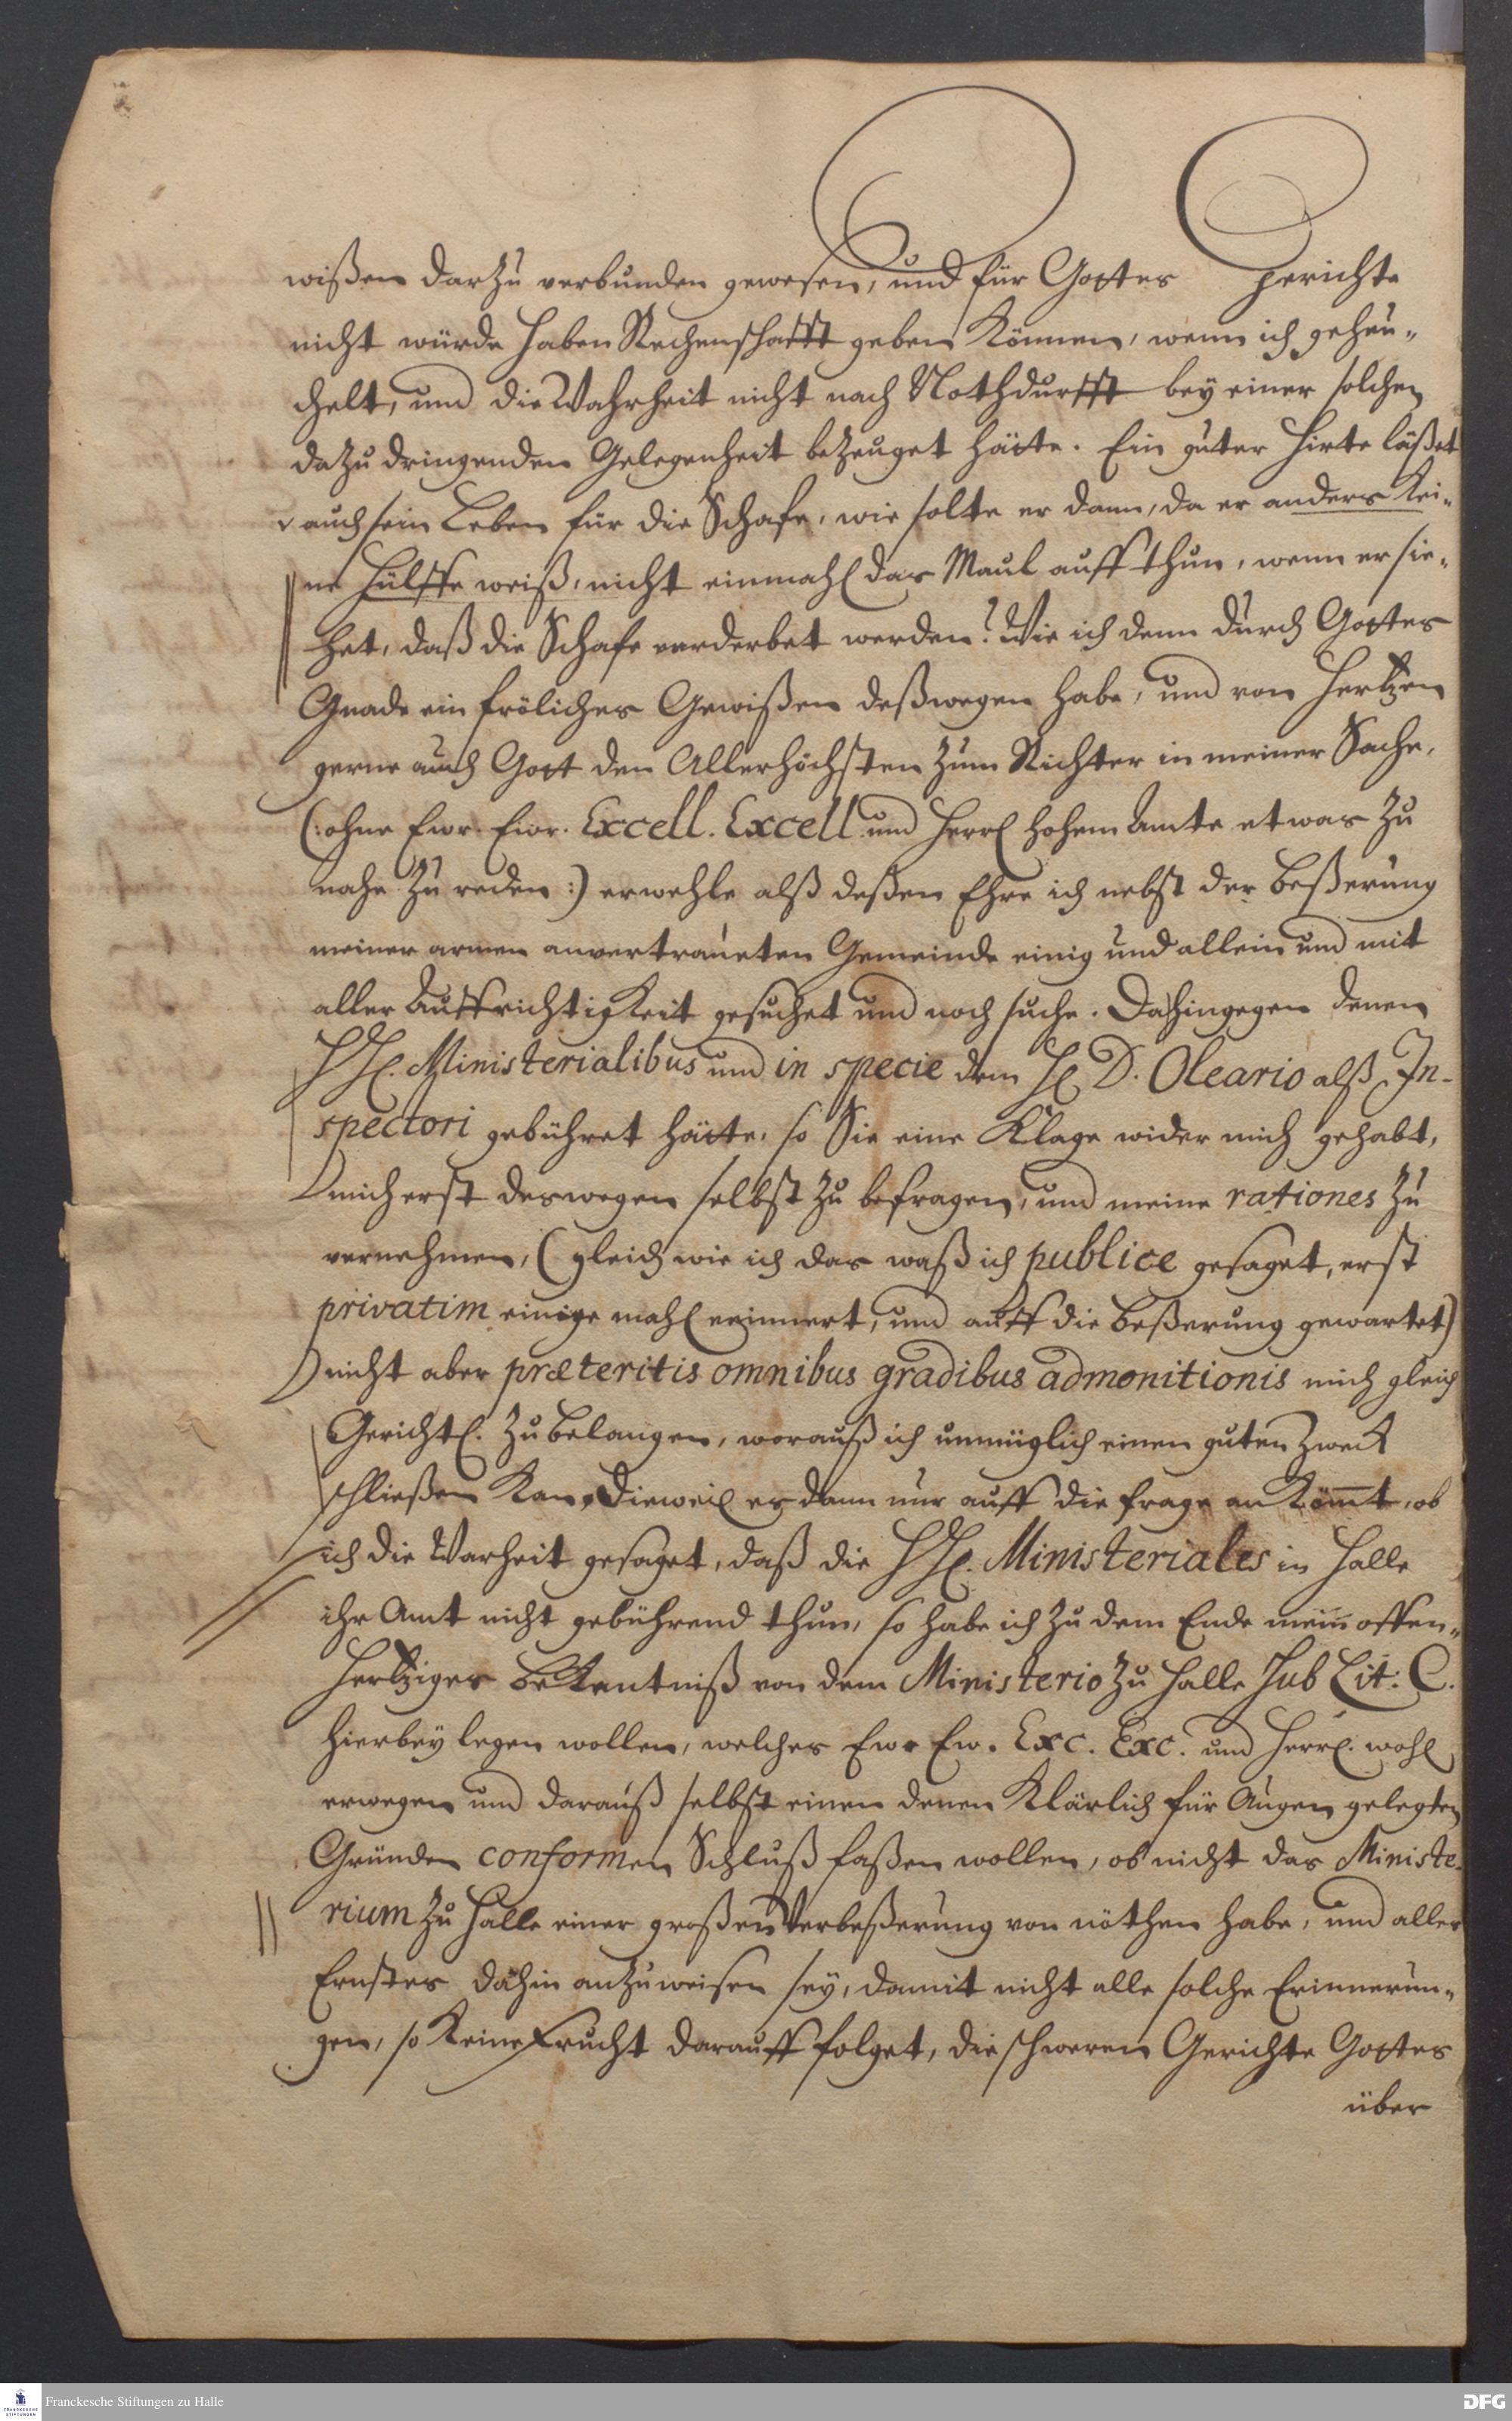 wißen darzu verbunden gewesen, und für Gottes gerichte
nicht würde haben Rechenschafft geben können, wenn ich geheu-
chelt, und die Wahrheit nicht nach Nothdurfft bey einer solchen
dazu dringenden Gelegenheit bezeuget hätte. Ein guter Hirte läßet
auch sein Leben für die Schafe, wie solte er dann, da er anders kei-
ne Hülffe weiß, nicht einmahl das Maul auffthun, wenn er sie-
het, daß die Schafe verderbet werden? Wie ich denn durch Gottes
Gnade ein fröliches Gewißen deßwegen habe, und von Hertzen
gerne auch Gott den Allerhöchsten zum Richter in meiner Sache,
(: ohne Ewr. Ewr. Excell. Excell und Herrl hohem Amte etwas zu
nahe zu reden :) erwehle alß deßen Ehre ich nebst der beßerung
meiner armen anvertraueten Gemeinde einig und allein und mit
aller Auffrichtigkeit gesuchet und noch suche. Dahingegen denen
HHl. Ministerialibus und in specie dem Hl D. Oleario alß In-
spectori gebühret hätte, so Sie eine Klage wider mich gehabt,
mich erst deswegen selbst zu befragen, und meine rationes zu
vernehmen, (gleich wie ich das waß ich publice gesaget, erst
privatim einige mahl erinnert, und auff die beßerung gewartet)
nicht aber præteritis omnibus gradibus admonitionis mich gleich
Gerichtl. zu belangen, worauß ich unmüglich einen guten Zweck
schließen kan, Dieweil es dann nur auff die frage ankömt, ob
ich die Warheit gesaget, daß die HHl. Ministeriales in Halle
ihr Amt nicht gebührend thun, so habe ich zu dem Ende mein offen-
hertziges bekentniß von dem Ministerio zu Halle sub Lit: C.
hierbey legen wollen, welches Ew. Ew. Exc. Exc. und Herrl. wohl
erwegen und darauß selbst einen denen klärlich für Augen gelegten
Gründen conformen Schluß faßen wollen, ob nicht das Ministe-
rium zu Halle einer großen Verbeßerung von nöthen habe, und alles
Ernstes dahin anzuweisen sey, damit nicht alle solche Erinnerun-
gen, so keine Frucht darauff folget, die schweren Gerichte Gottes
über
Franckesche Stiftungen zu Halle
DFG